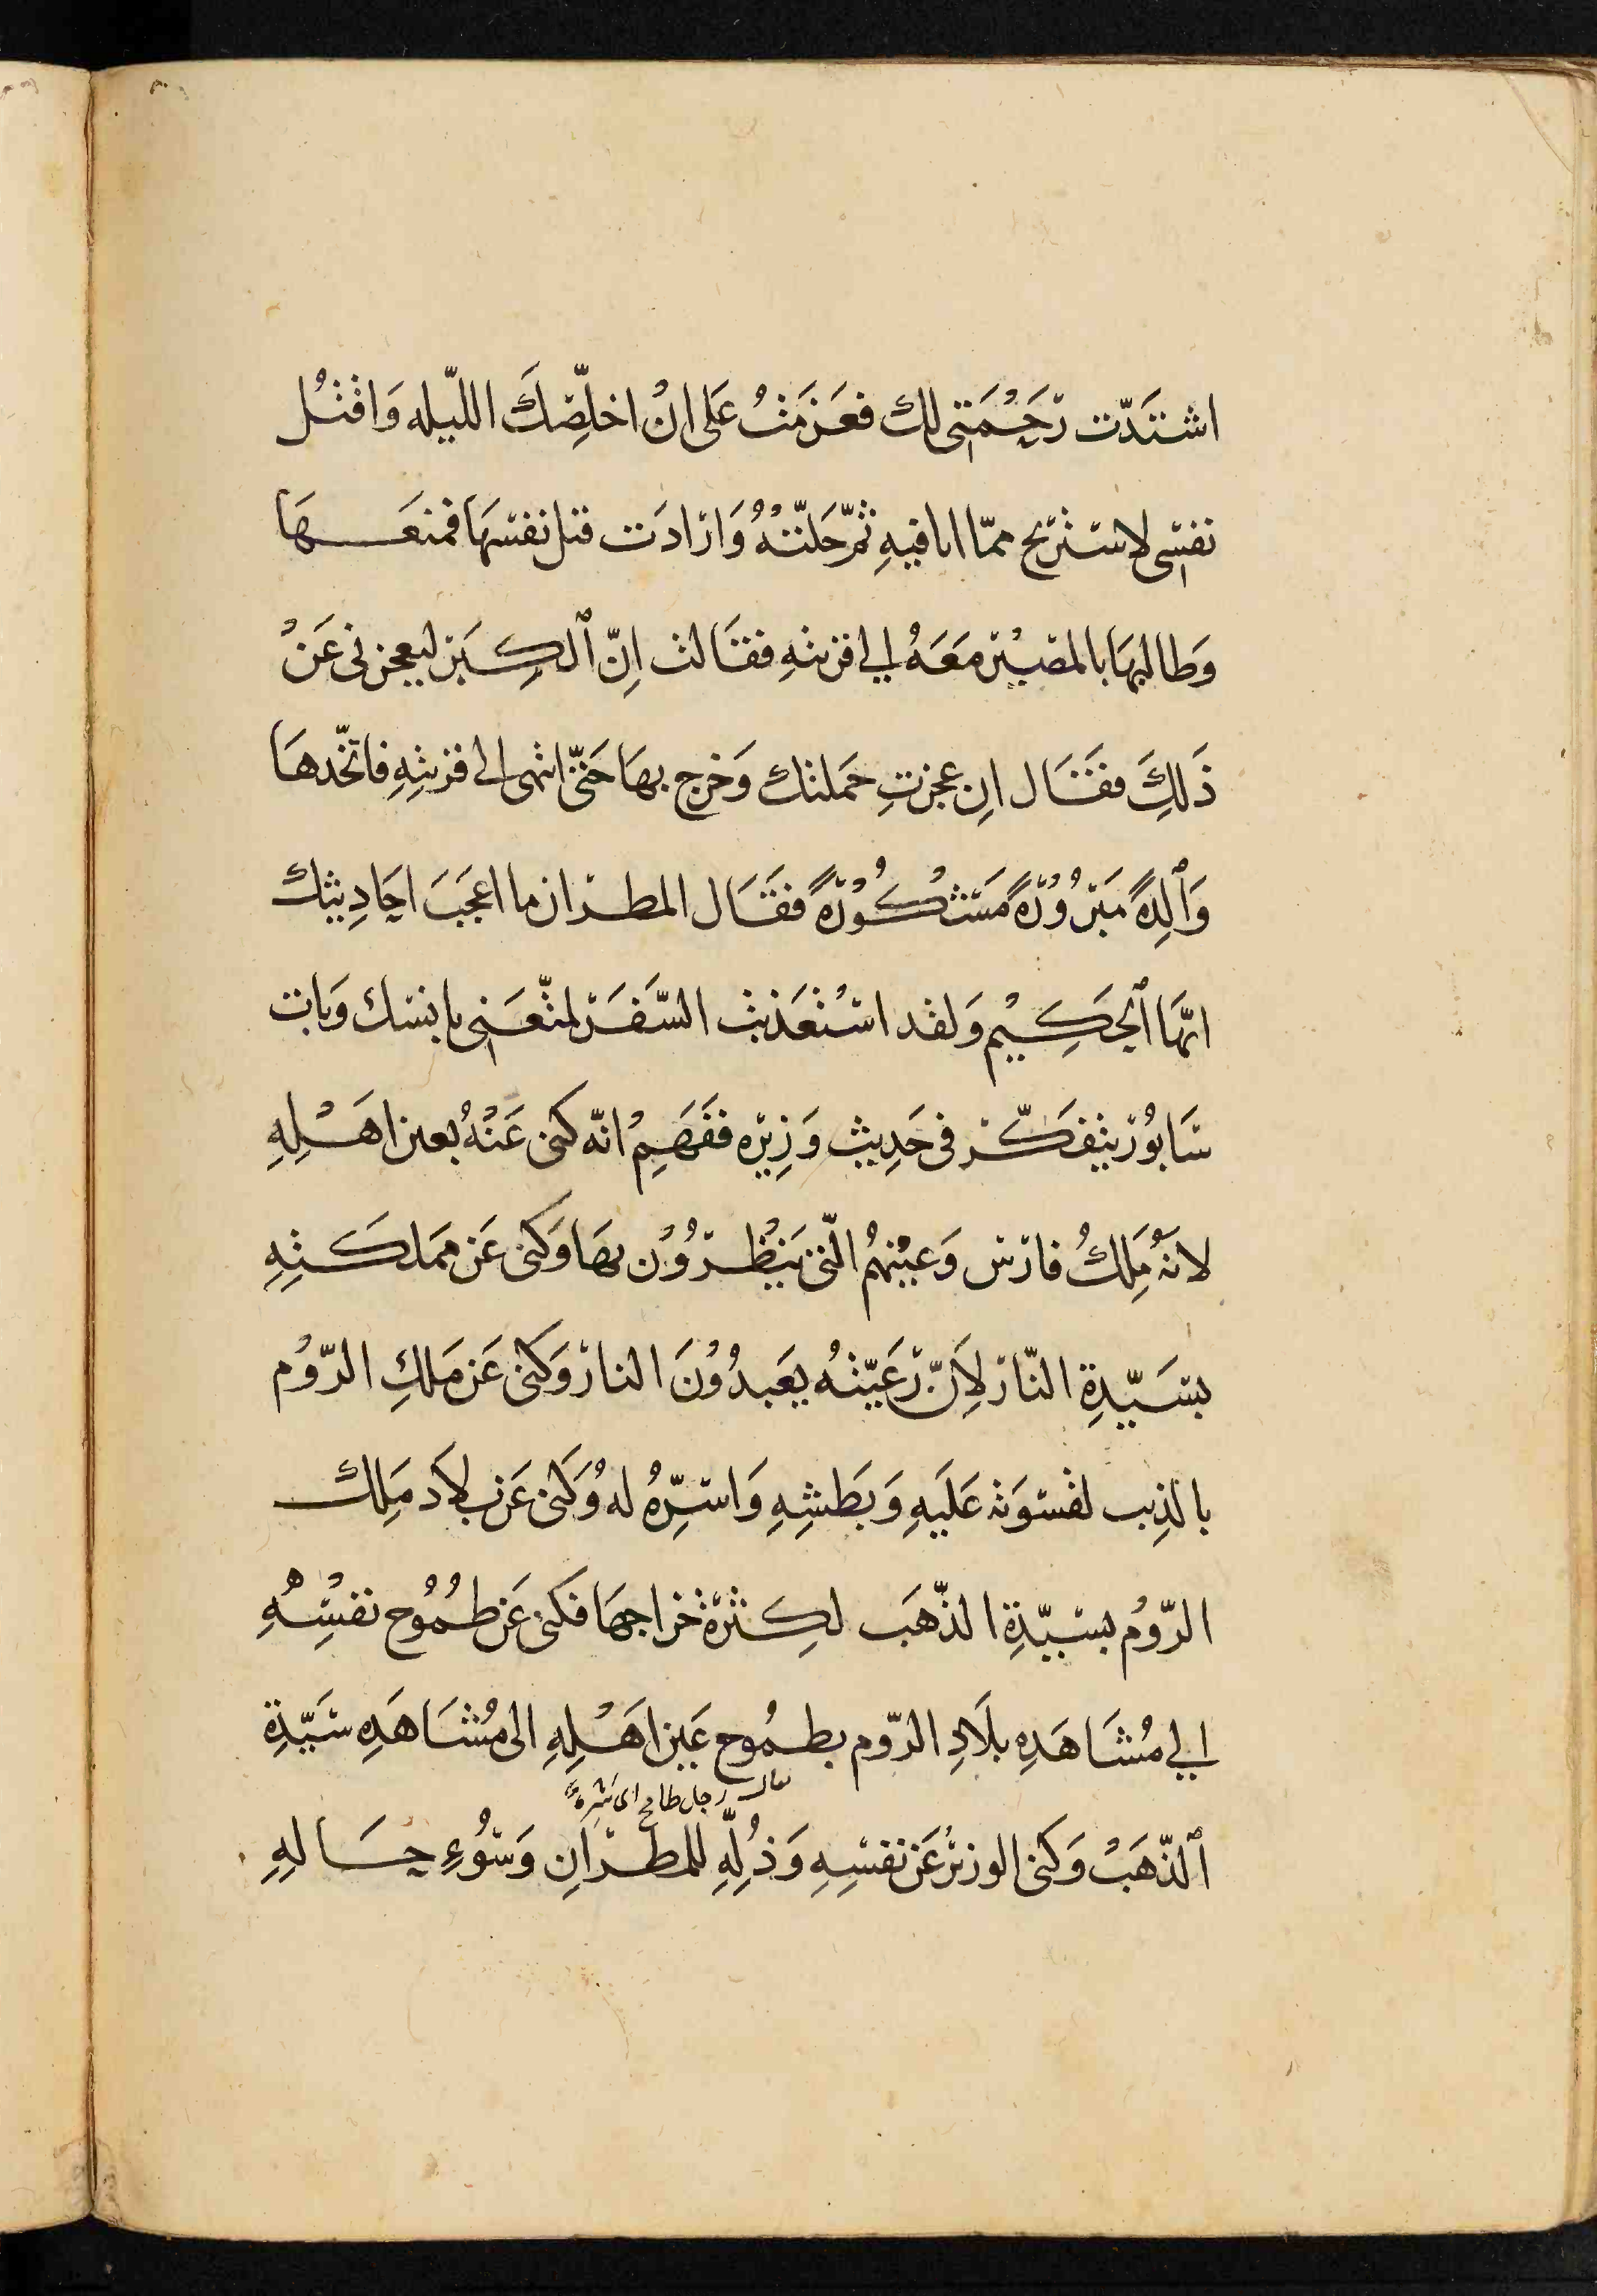 اشتَدّت رَحْمَتى لك فعَزمَتُ عَلى انْ اخلِّصَكَ الليّله وَاقتُل
نفسِى لاستريح ممّا انا فيهِ ثمّ حَلتّهُ وَارَادَت قتل نفسَهَا فمنعَهَا
وَطالبهَا بالمصيْر مَعَهُ الي قريتهِ فقَالت اِنّ ٱلكِبَر ليعجزنى عَنْ
ذَلِكَ فقَال اِن عجزتِ حَملتك وَخرج بهَا حَتىّ انتهى الى قريتِهِ فاتخّدهَا
وَٱلِدةً مَبْرُوْرةً مَشكُوْرةً فقَال المطران ما اعجَبَ احَادِيثك
ايّهَا ٱلحكِيْم وَلقد استْعَذبت السّفرَ لتمتّعَنى بانسك وَبات
سَابُوْر يتفكّر فى حَدِيث وَزِيْره ففَهِمْ انّه كنى عَنْهُ بعين اهْلِهِ
لانهُ مَلِكُ فارس وَعيْنهمُ الّتى يَنْظرُوْن بهَا وَكنى عَن ممَلكتِهِ
بسَيّدِة النّار لاَنّ رَعَيّتهُ يعَبدُوْنَ النار وَكنى عَن مَلكِ الرّوُم
بالذِيب لقسْوَته عَلَيهِ وَبَطشِهِ وَاسْرِهُ لهُ وَكنى عَن بلاَد مَلِك
الرّوُم بسَيّدِة الذّهَب لكِثرة خراجهَا فكنى عَن طُموُح نفسْهُِ
الي مُشَاهَدِه بلَادِ الرّوم بطمُوح عَين اهْلِهِ الى مُشَاهَدِه سَيّدِة
يقال رجل طامح اى شرِه
ٱلذّهَبْ وَكنى الوزيرْ عَن نفسِهِ وَذُلِّهِ للمطرَانِ وَسُوْءِ حَالهِ